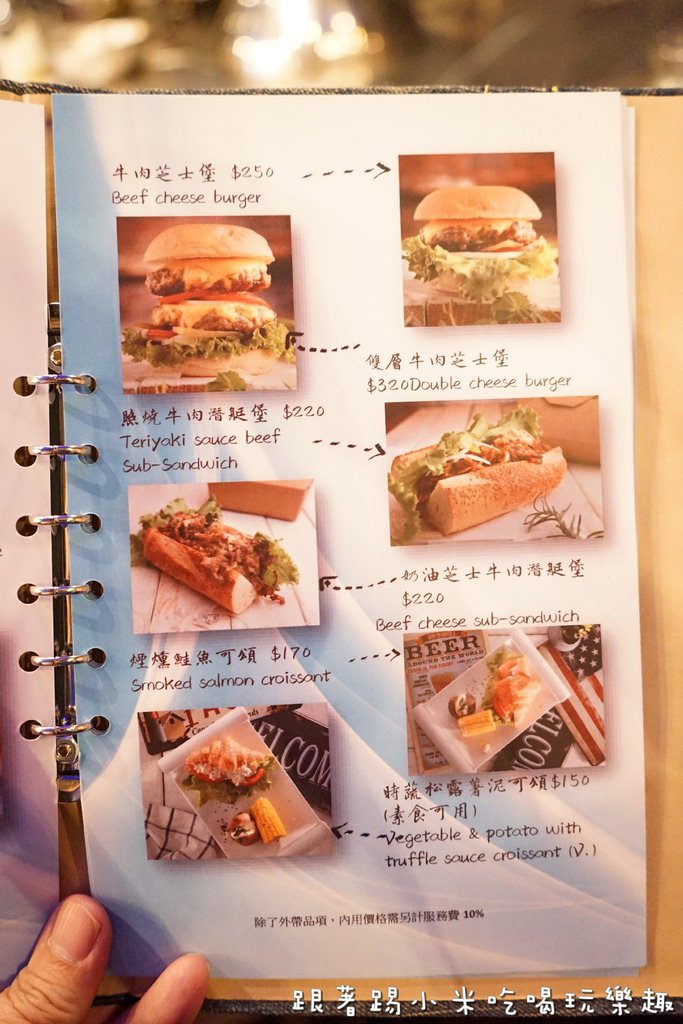 牛肉芝士堡 $250
Beef cheese burger
雙層牛肉芝士堡
$320Double cheese burger
照燒牛肉潛艇堡 $220
Teriyaki sauce beef
Sub-Sandwich
奶油芝士牛肉潛艇堡
$220
Beef cheese sub-sandwich
煙燻鮭魚可頌 $170
Smoked salmon croissant
BEER
AROUND THE WORLD
WELCOM
時蔬松露薯泥可頌$150
(素食可用)
Vegetable & potato with
truffle sauce croissant (V.)
除了外帶品項，內用價格需另計服務費 10%
跟著踢小米吃喝玩樂趣